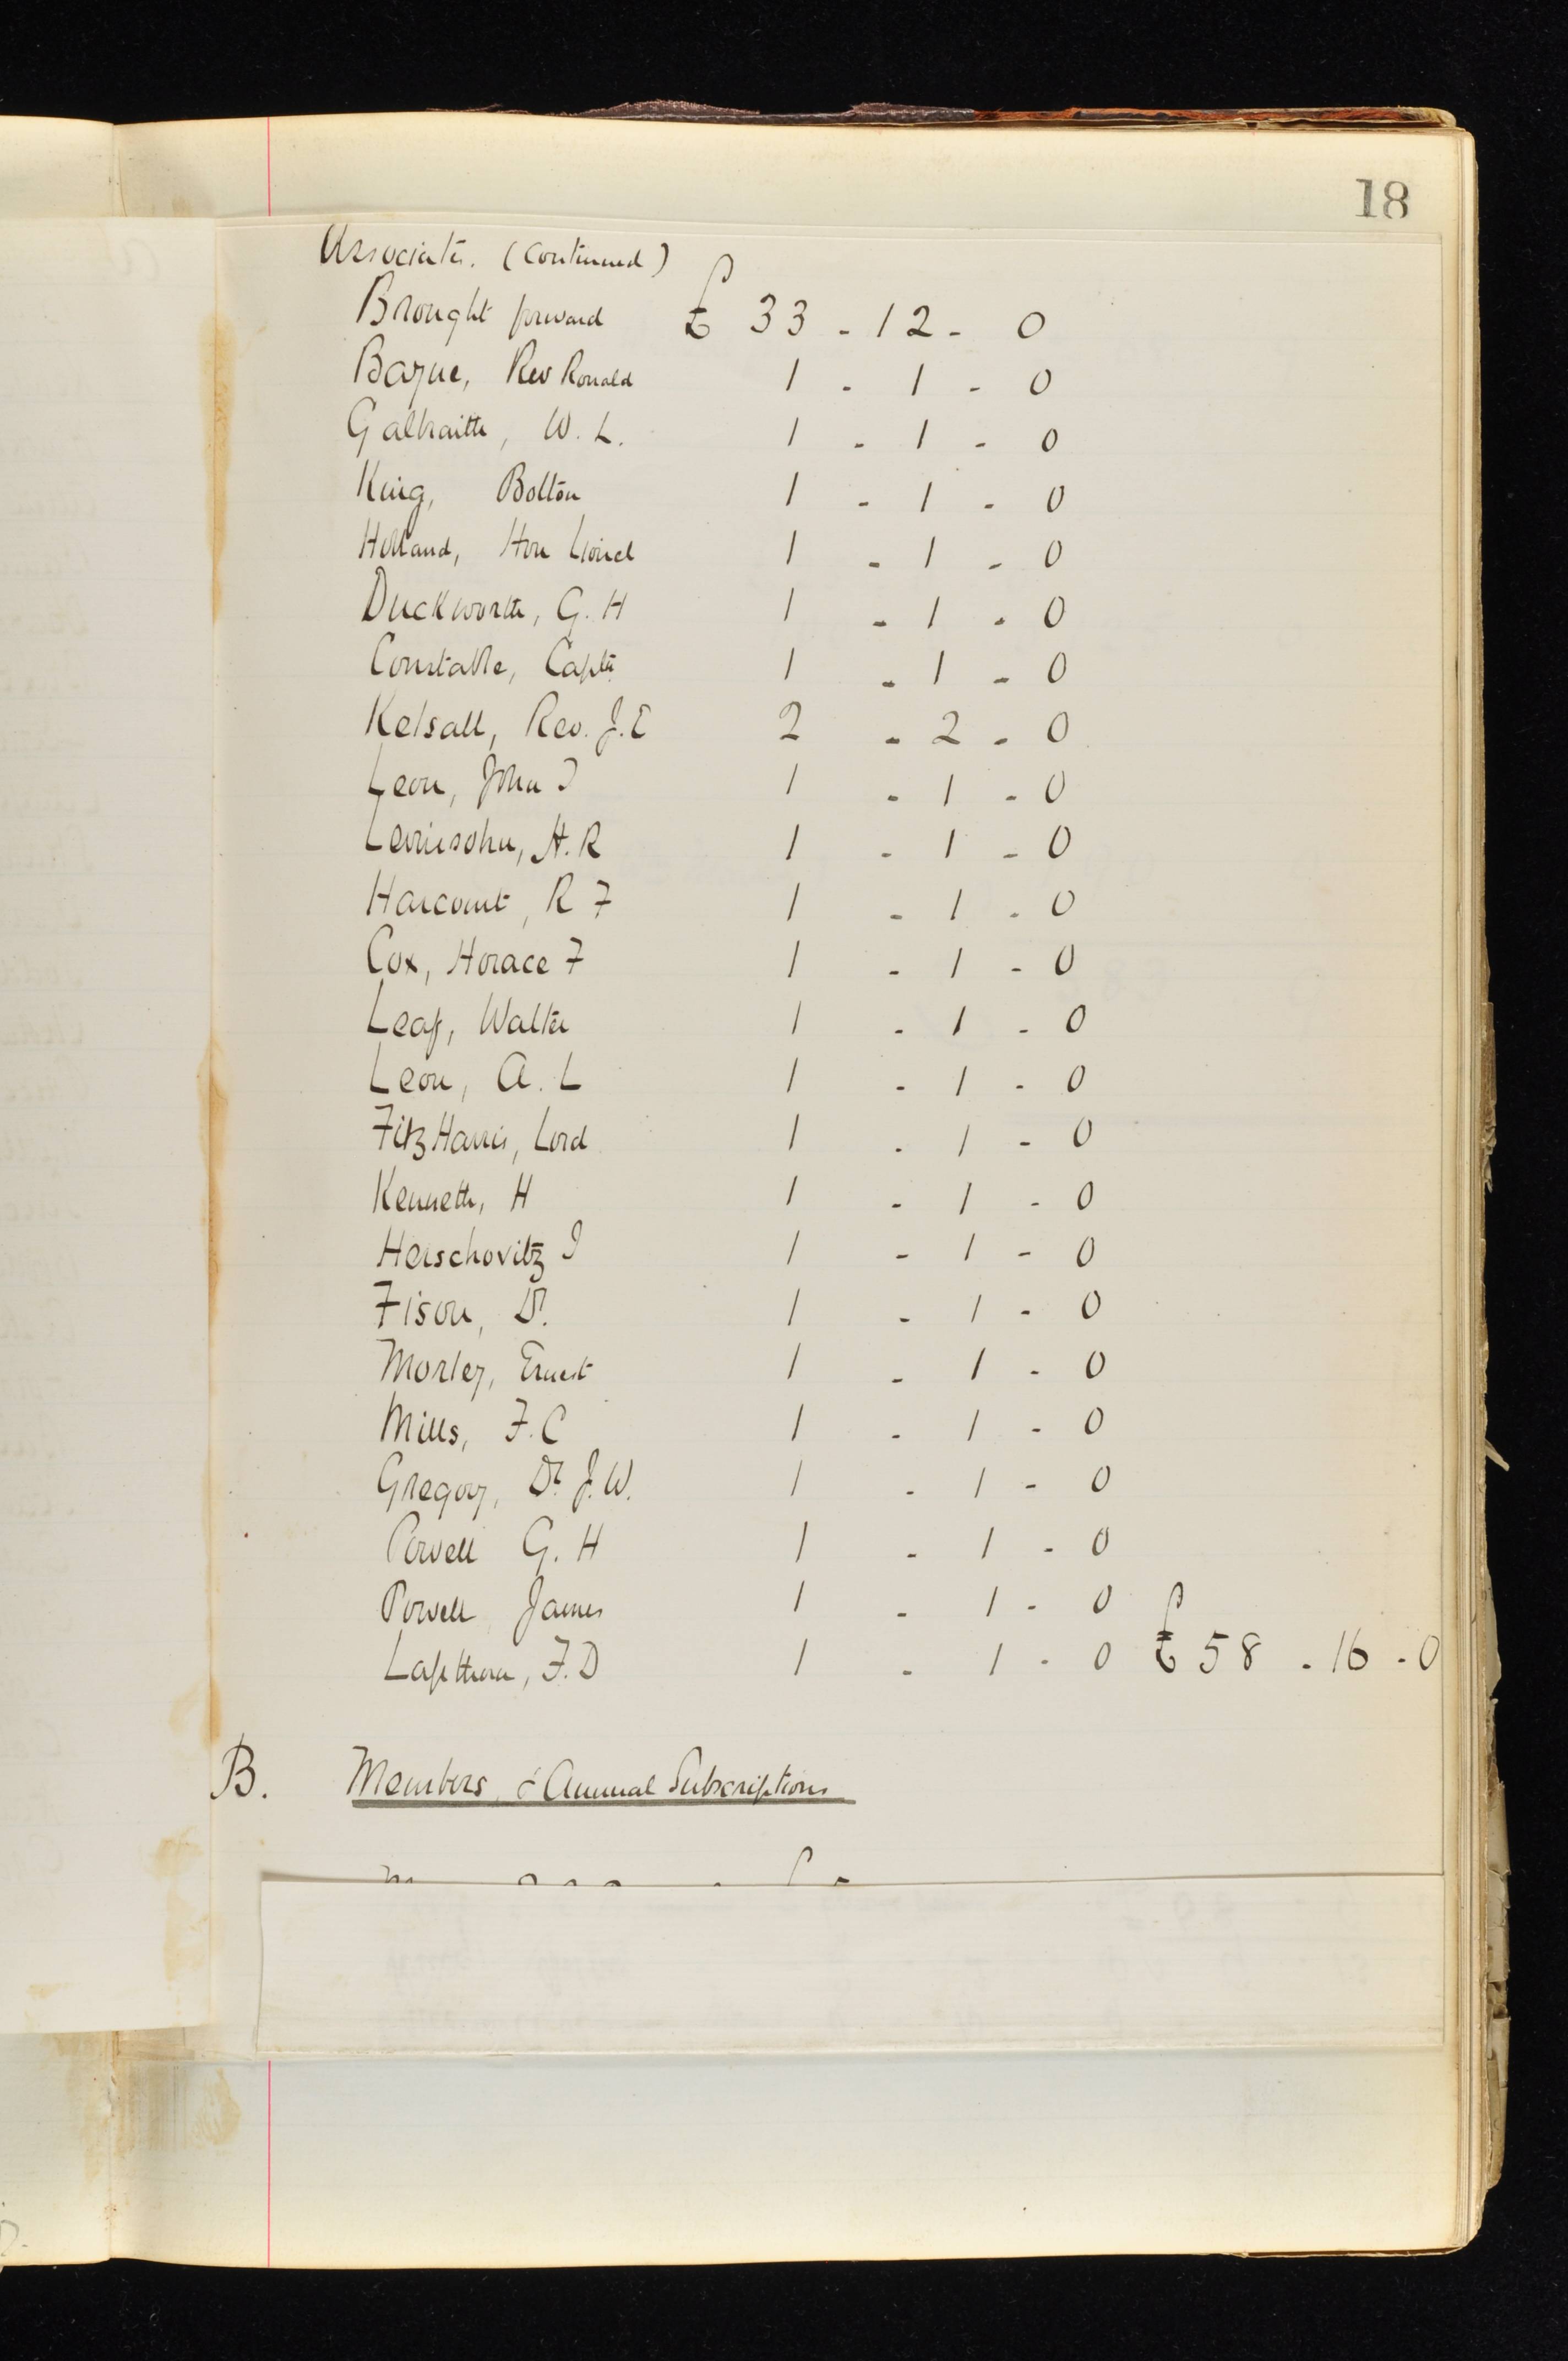 18
Associates. (Continued)
Brought forward £ 33 - 12 - 0
Bayne, Rev Ronald 1 - 1 - 0
Galbraith, W. L. 1 - 1 - 0
King, Bolton 1 - 1 - 0
Holland, Hon Lionel 1 - 1 - 0
Duckworth, G. H 1 - 1 - 0
Constable, Captn 1 - 1 - 0
Kelsall, Rev. J. E 2 - 2 - 0
Leon, John I 1 - 1 - 0
Levinsohn, H. R 1 - 1 - 0
Harcourt, R F 1 - 1 - 0
Cox, Horace F 1 - 1 - 0
Leaf, Walter 1 - 1 - 0
Leon, A. L 1 - 1 - 0
FitzHarris, Lord 1 - 1 - 0
Kenneth, H 1 - 1 - 0
Herschovitz I 1 - 1 - 0
Fison, Dr. 1 - 1 - 0
Morley, Ernest 1 - 1 - 0
Mills, F. C 1 - 1 - 0
Gregory, Dr J. W. 1 - 1 - 0
Powell G. H 1 - 1 - 0
Powell, James 1 - 1 - 0
Lapthorn, F. D 1 - 1 - 0 £ 58 - 16 - 0
B. Members, & Annual Subscriptions